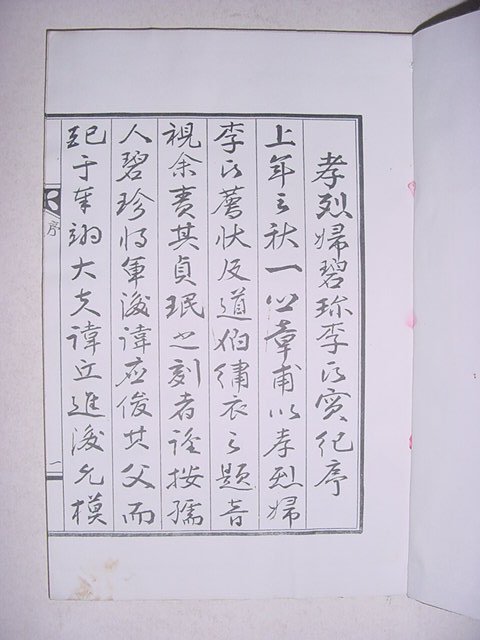 孝烈婦碧珍李氏實紀序
上年之秋一心章甫以孝烈婦
李氏薦狀及道伯繡衣之題音
視余責其貞珉之刻者謹按孺
人碧珍將軍後諱應俊其父而
于翊大夫諱立進後允模
序
一